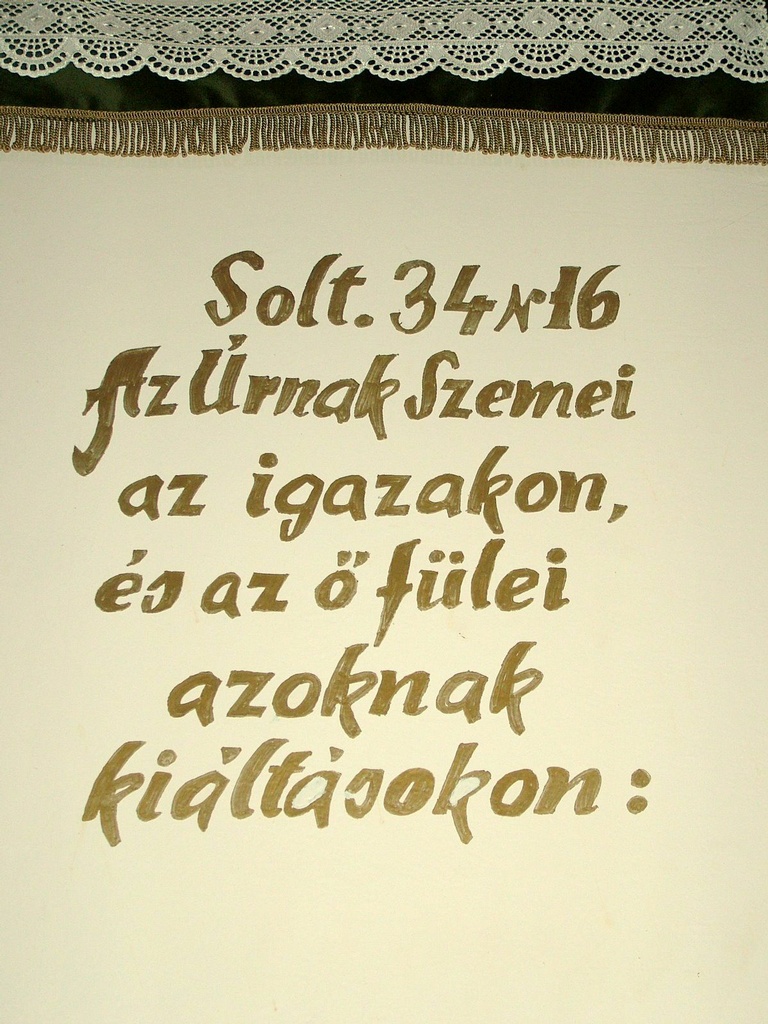 Solt. 34 v 16
Az Úrnak Szemei
az igazakon,
és az ő fülei
azoknak
kiáltásokon :